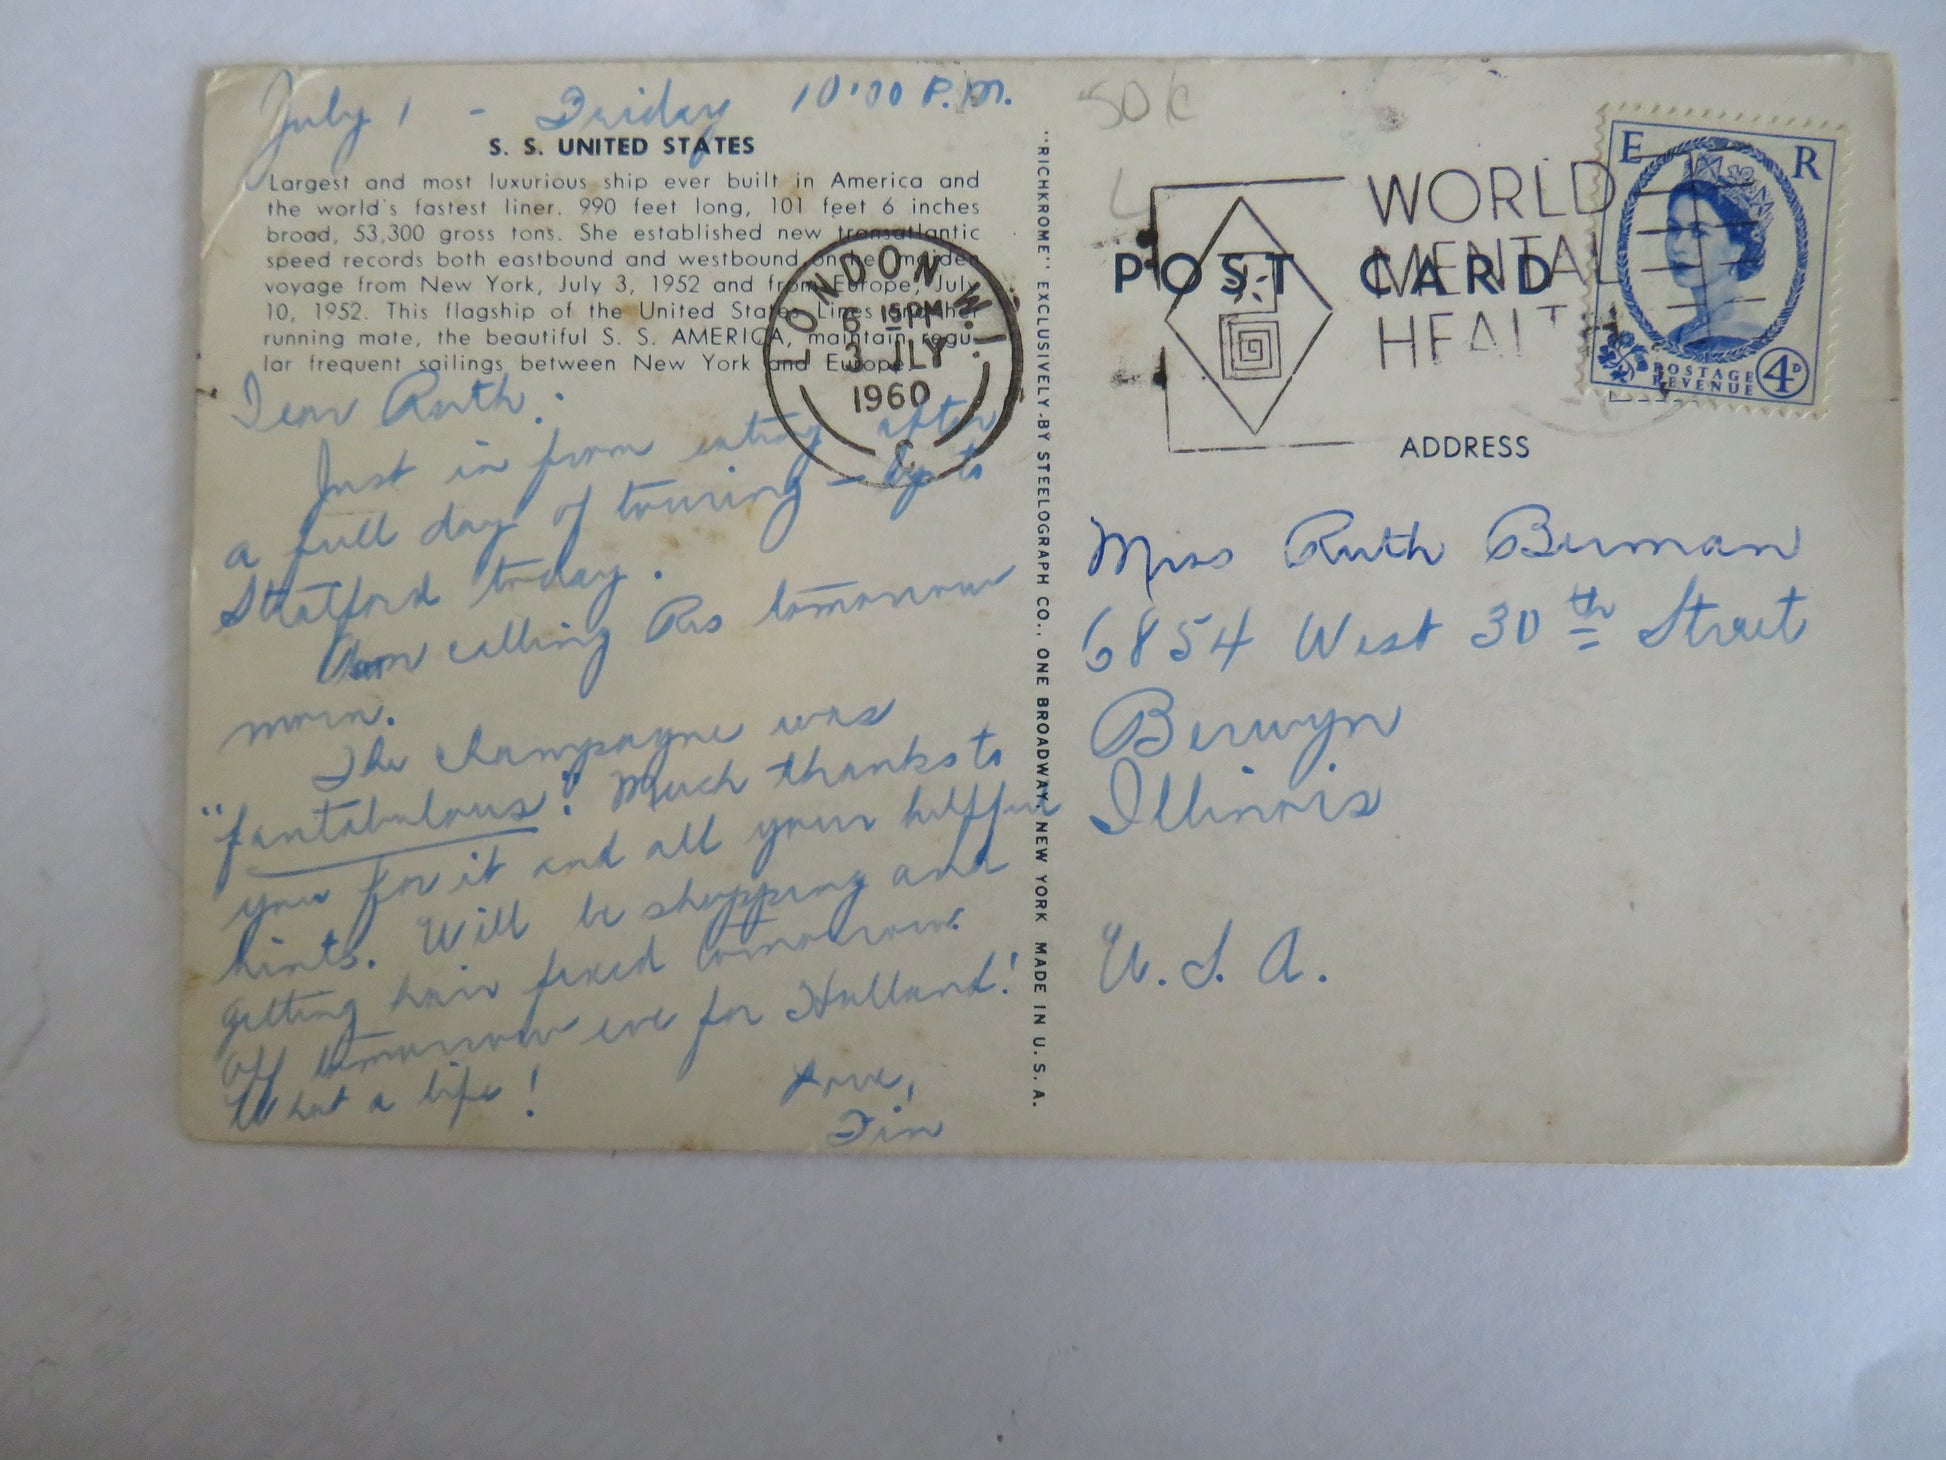 July 1 - Friday 10:00 P.M.
S. S. UNITED STATES
Largest and most luxurious ship ever built in America and
the world's fastest liner. 990 feet long, 101 feet 6 inches
broad, 53,300 gross tons. She established new transatlantic
speed records both eastbound and westbound on her maiden
voyage from New York, July 3, 1952 and from Europe, July
10, 1952. This flagship of the United States Lines and her
running mate, the beautiful S. S. AMERICA, maintain regu-
lar frequent sailings between New York and Europe.
Dear Ruth:
Just in from eating after
a full day of touring — up to
Stratford today.
Am calling Ros tomorrow
morn.
The champagne was
"fantabulous". Much thanks to
you for it and all your helpful
hints. Will be shopping and
getting hair fixed tomorrow.
Off tomorrow eve for Holland!
What a life!
Love,
Fin
LONDON W.1.
6 15PM
3 JLY
1960
C
"RICHKROME" EXCLUSIVELY BY STEELOGRAPH CO., ONE BROADWAY, NEW YORK MADE IN U. S. A.
50¢
WORLD
MENTAL
HEALTH
POST CARD
E R
POSTAGE
REVENUE
4D
ADDRESS
Miss Ruth Berman
6854 West 30th Street
Berwyn
Illinois
U. S. A.